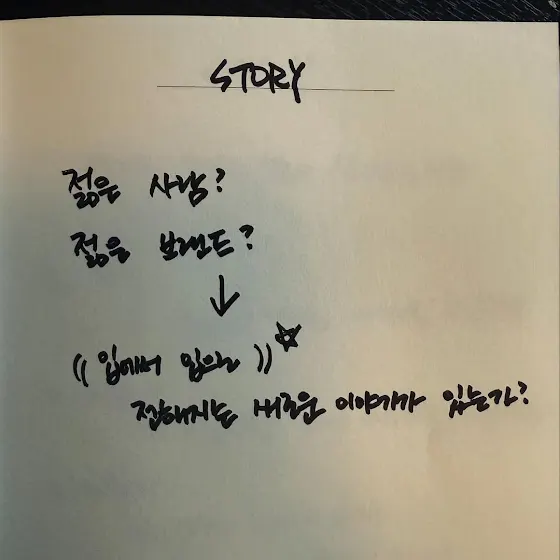 STORY
젊은 사람?
젊은 브랜드?
↓
(( 입에서 입으로 ))☆
전해지는 새로운 이야기가 있는가?